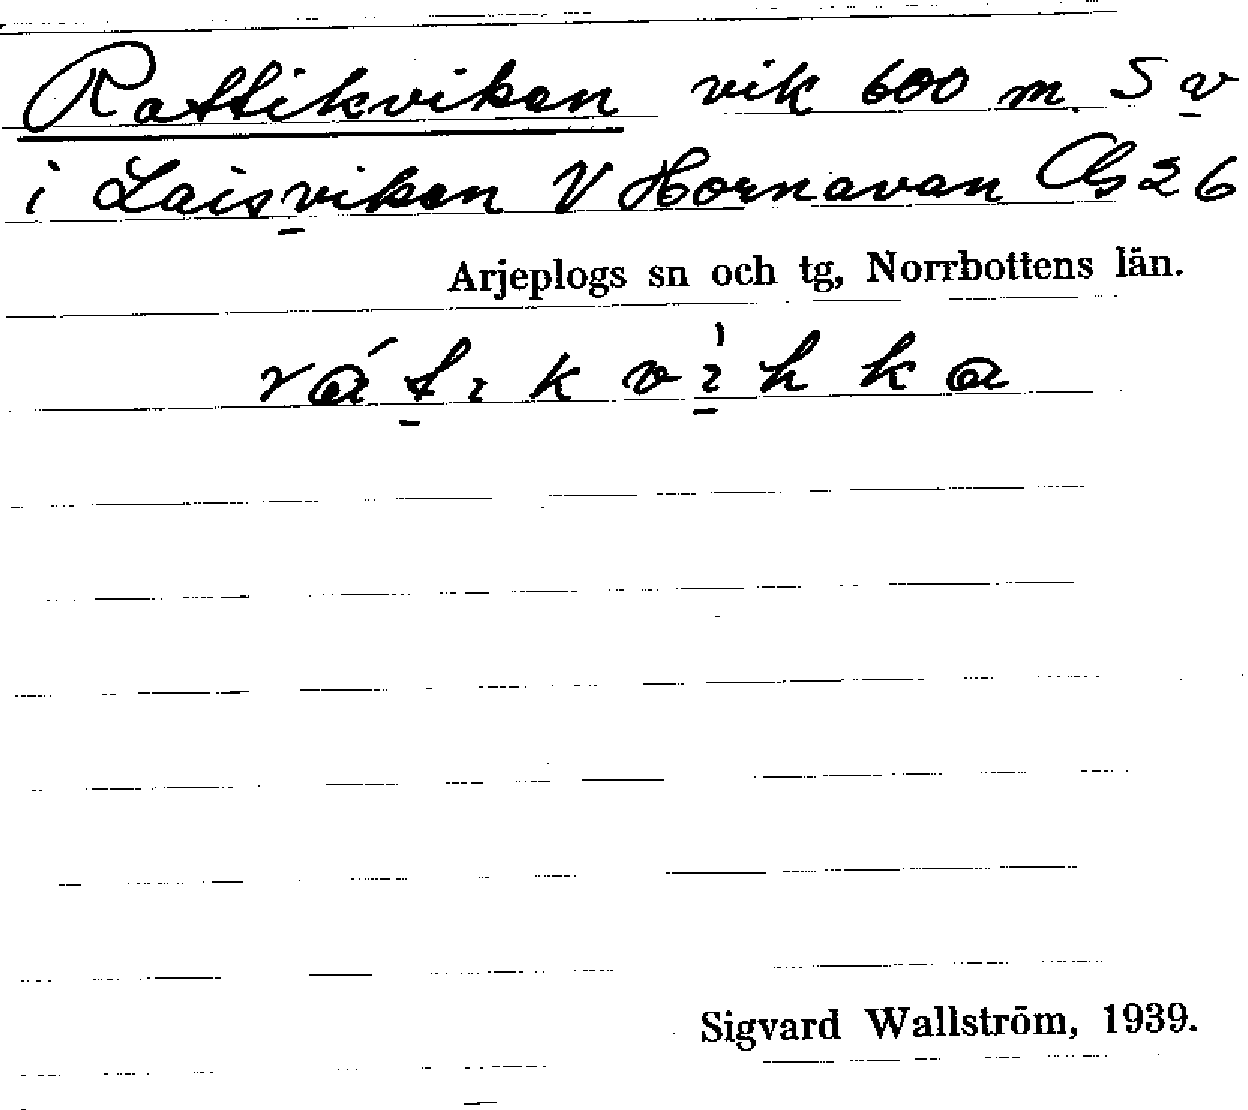 Rattikviken vik 600 m. S v
i Laisviken V Hornavan Cb 26
Arjeplogs sn och tg, Norrbottens län.
rátıkvìhka
Sigvard Wallström, 1939.